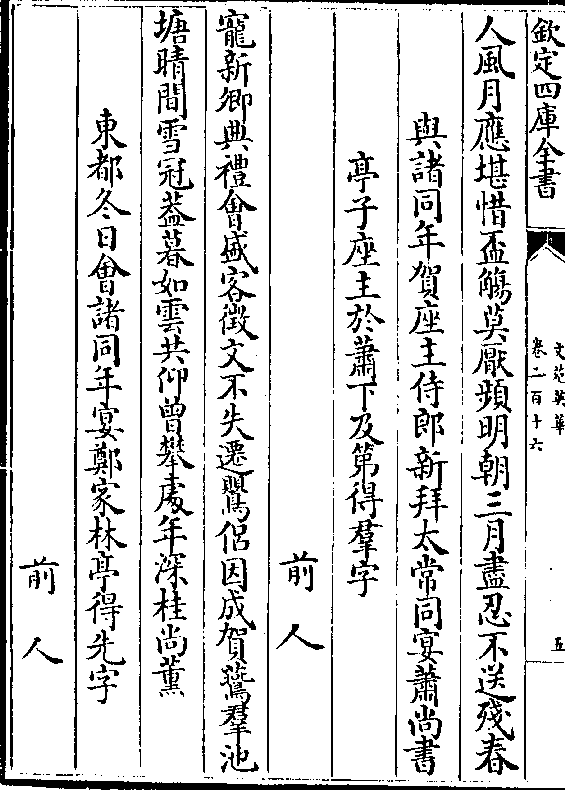 欽定四庫全書
文苑英華
卷二百十六
五
人風月應堪惜盃觴莫厭頻明朝三月盡忍不送殘春
與諸同年賀座主侍郎新拜太常同宴蕭尚書
亭子座主於蕭下及第得羣字
前人
寵新卿典禮會盛客徵文不失遷鶯侶因成賀鷰羣池
塘晴間雪冠葢暮如雲共仰曾攀處年深桂尚薰
東都冬日會諸同年宴鄭家林亭得先字
前人